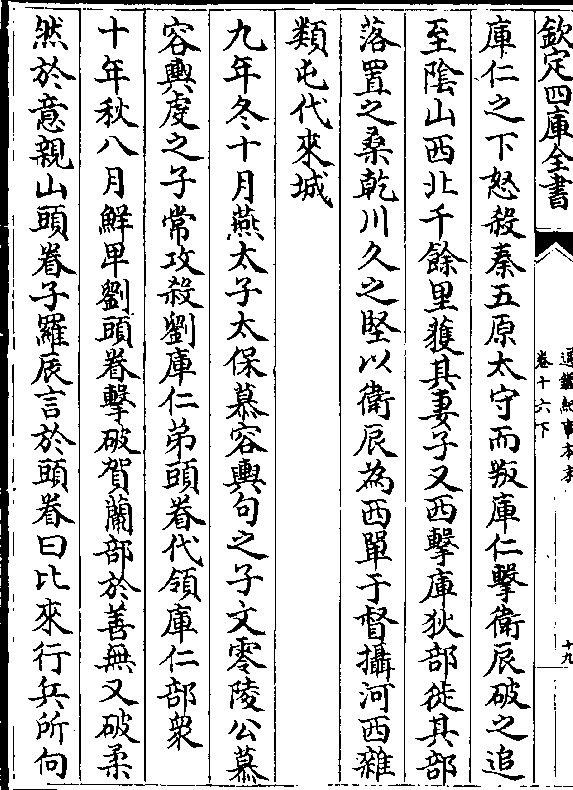 欽定四庫全書
通鑑紀事本末
卷十六下
十九
庫仁之下怒殺秦五原太守而叛庫仁擊衛辰破之追
至陰山西北千餘里獲其妻子又西擊庫狄部徙其部
落置之桑乾川久之堅以衛辰為西單于督攝河西雜
類屯代來城
九年冬十月燕太子太保慕容輿句之子文零陵公慕
容輿虔之子常攻殺劉庫仁弟頭眷代領庫仁部衆
十年秋八月鮮卑劉頭眷擊破賀蘭部於善無又破柔
然於意親山頭眷子羅辰言於頭眷曰比來行兵所向